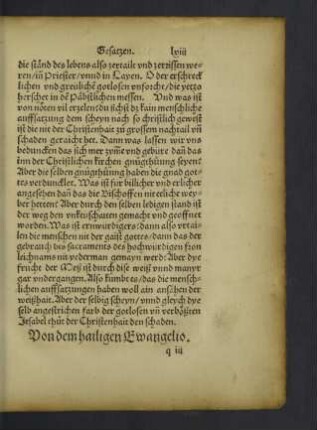 Gesatzen. lxiii
die stånd des lebens also zertailt vnd zerrissen wer-
den/in Priester/vnnd in Layen. O der erschrock
lichen vnd greulichē gotlosen vnforcht/die yetzo
herschet in dē Påbstlichen messen. Vnd was ist
von nöten vil erzelens/du sichst dz kain menschliche
auffsatzung dem scheyn nach so christlich gewest
ist die nit der Christenhait zů grossem nachtail vñ
schaden geraicht het. Dann was lassen wir vns
beduncken das sich mer zymt vnd gebürt dañ das
inn der Christlichen kirchen gnůgthůung seyen?
Aber die selben gnůgthůung haben die gnad got-
tes verduncklet. Was ist für billicher vnd erlicher
angesehen dañ das die Bischoffen nit erliche wey-
ber hetten? Aber durch den selben ledigen stand ist
der weg den vnkeuschaiten gemacht vnd geöffnet
worden. Was ist erwirdigers/dann also vrtai-
len die menschen nit der gaist gottes/dann das der
gebrauch des Sacraments des hochwirdigen fron
leichnams nit yederman gemayn werd? Aber dye
frucht der Meß ist durch dise weiß vnnd manyr
gar vndergangen. Also kumbt es/das die mensch-
lichen auffsatzungen haben woll ain ansehen der
weißhait. Aber der selbig scheyn/vnnd gleych dye
selb angestrichen farb der gotlosen vñ verbößten
Jesabel thůt der Christenhait den schaden.
Von dem hailigen Ewangelio.
q iii